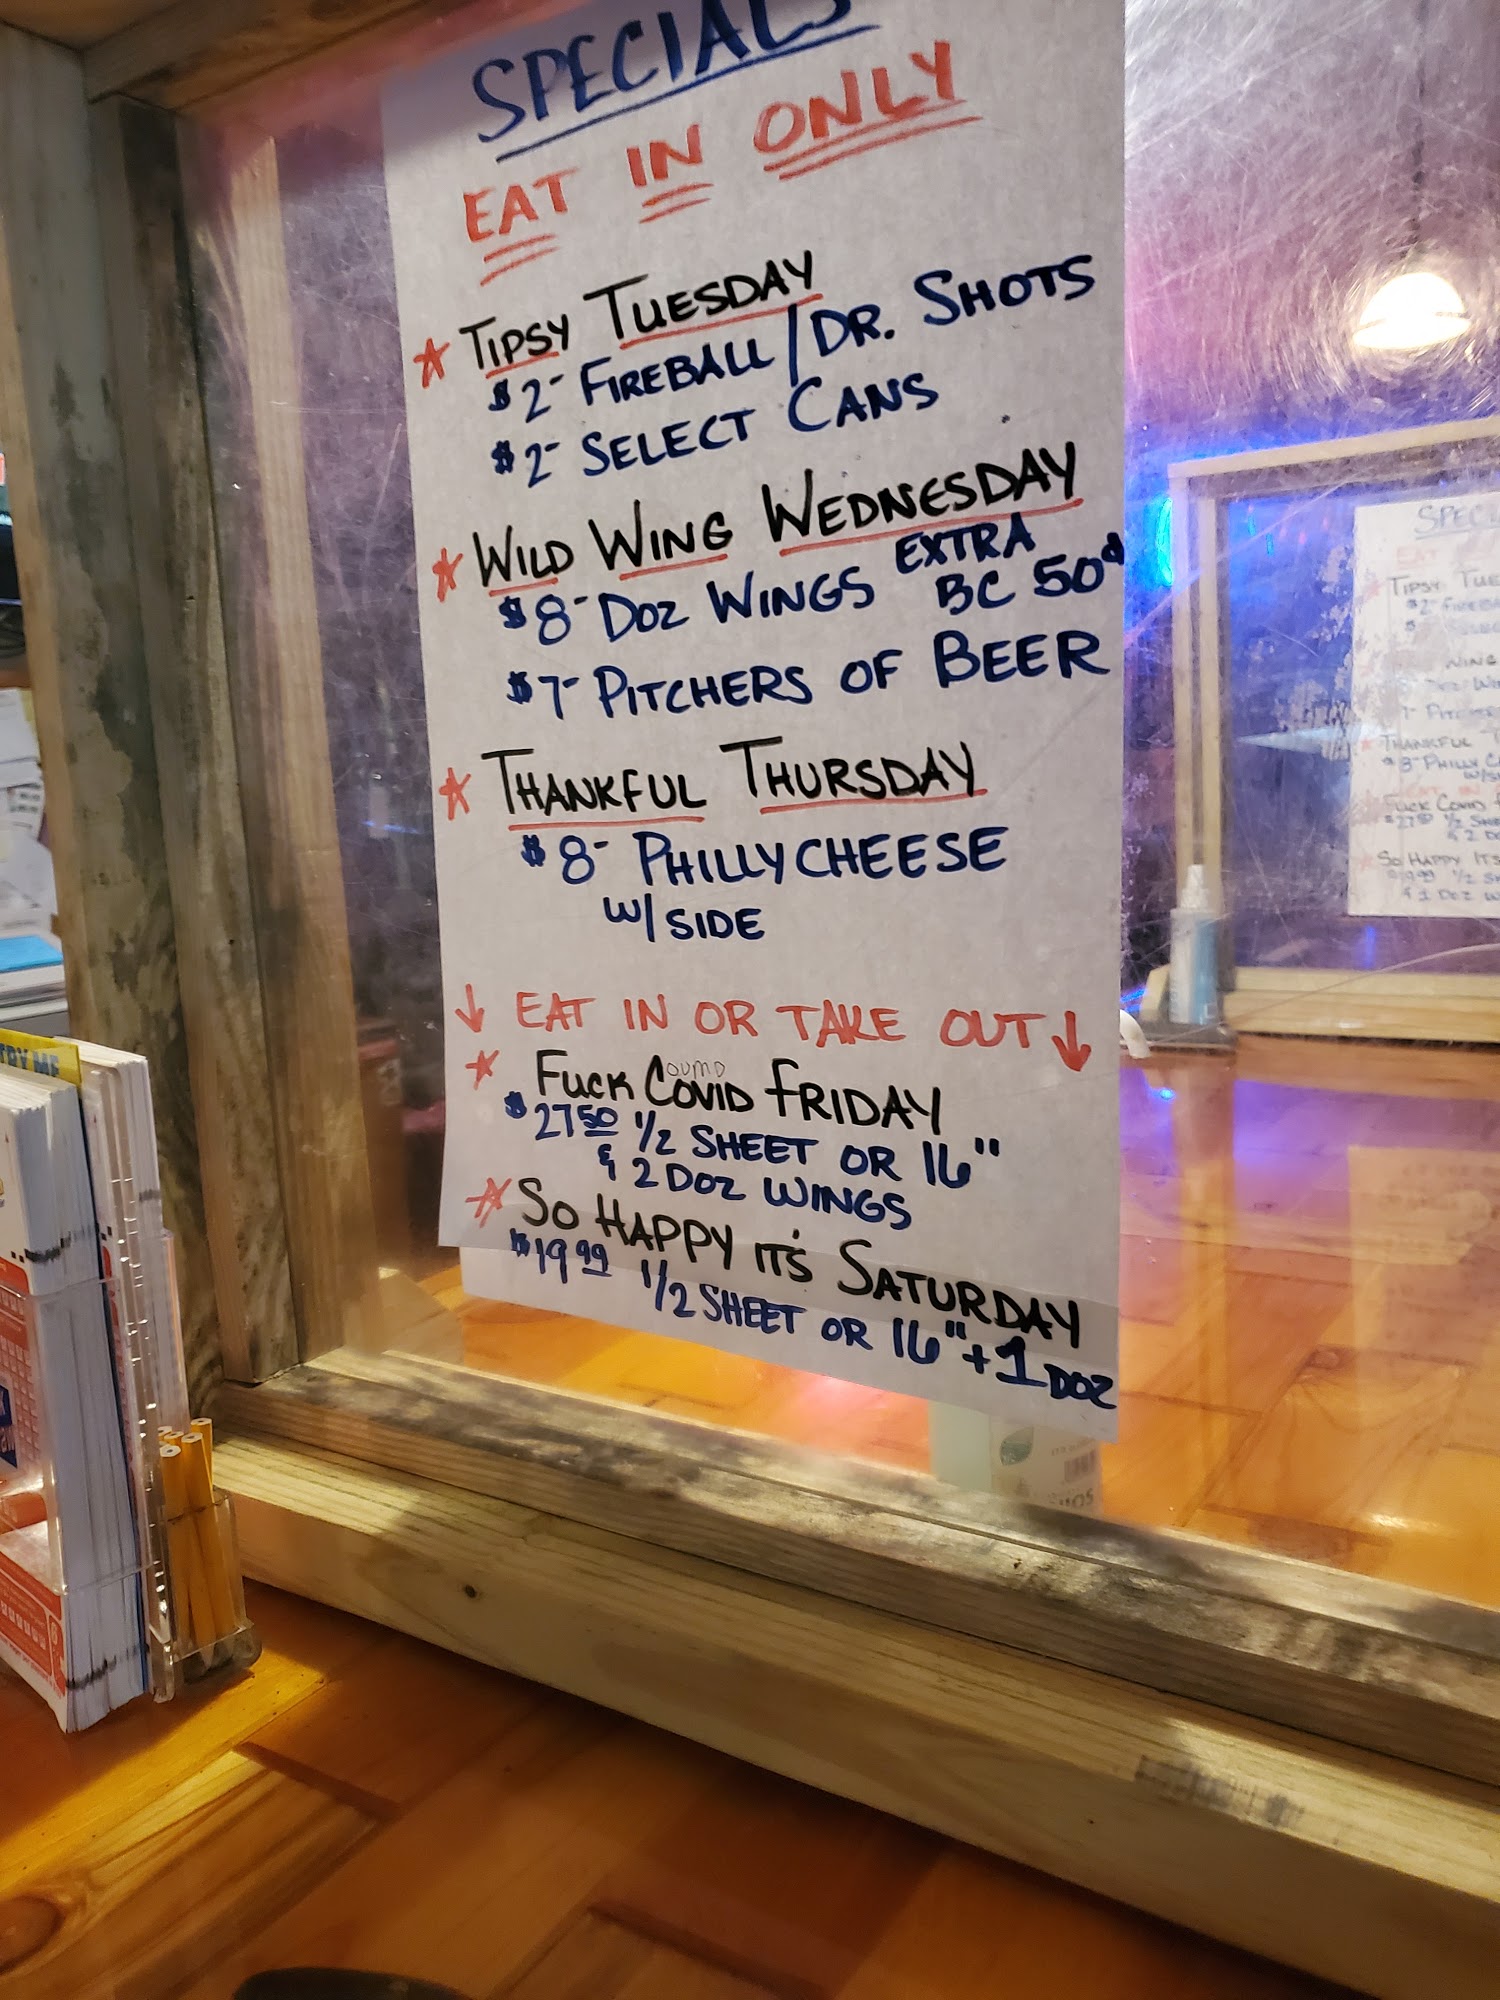 SPECIALS
EAT IN ONLY
TIPSY TUESDAY
$2- FIREBALL/DR. SHOTS
$2- SELECT CANS
WILD WING WEDNESDAY
$8- DOZ WINGS EXTRA BC 50¢
$7- PITCHERS OF BEER
THANKFUL THURSDAY
$8- PHILLYCHEESE
W/ SIDE
↓ EAT IN OR TAKE OUT ↓
FUCK COVID FRIDAY
$27.50 1/2 SHEET OR 16"
& 2 DOZ WINGS
SO HAPPY IT'S SATURDAY
$19.99 1/2 SHEET OR 16" + 1 DOZ
TRY ME
SPEC
TIPSY TUE
$2- FIREBA
WING
PITCHE
THANKFUL T
$8- PHILLY C
W/SI
FUCK COVID
$27.50 1/2 SHE
& 2 DO
SO HAPPY ITS
1/2 SH
& 1 DOZ W